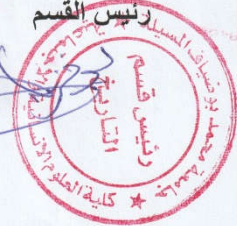 رئيس القسم
جامعة محمد بوضياف المسيلة
رئيس قسم
التاريخ
كلية العلوم الإنسانية والاجتماعية